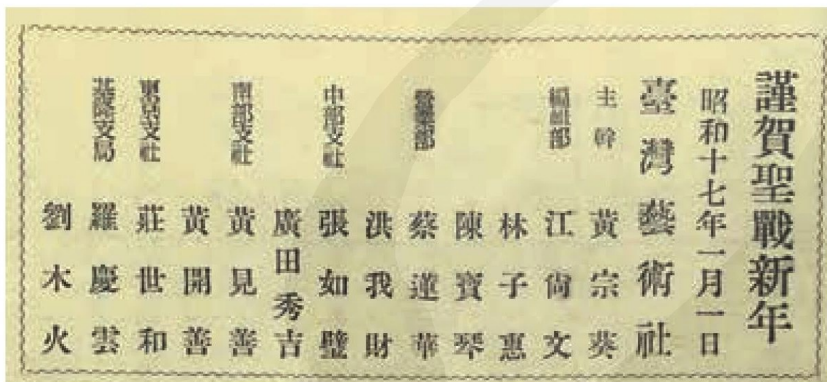 謹賀聖戰新年
昭和十七年一月一日
臺灣藝術社
主幹 黃宗葵
編輯部 江尙文
林子惠
陳寶琴
營業部 蔡蓮華
洪我財
中部支社 張如璧
廣田秀吉
南部支社 黃見善
黃開善
東京支社 莊世和
基隆支局 羅慶雲
劉木火